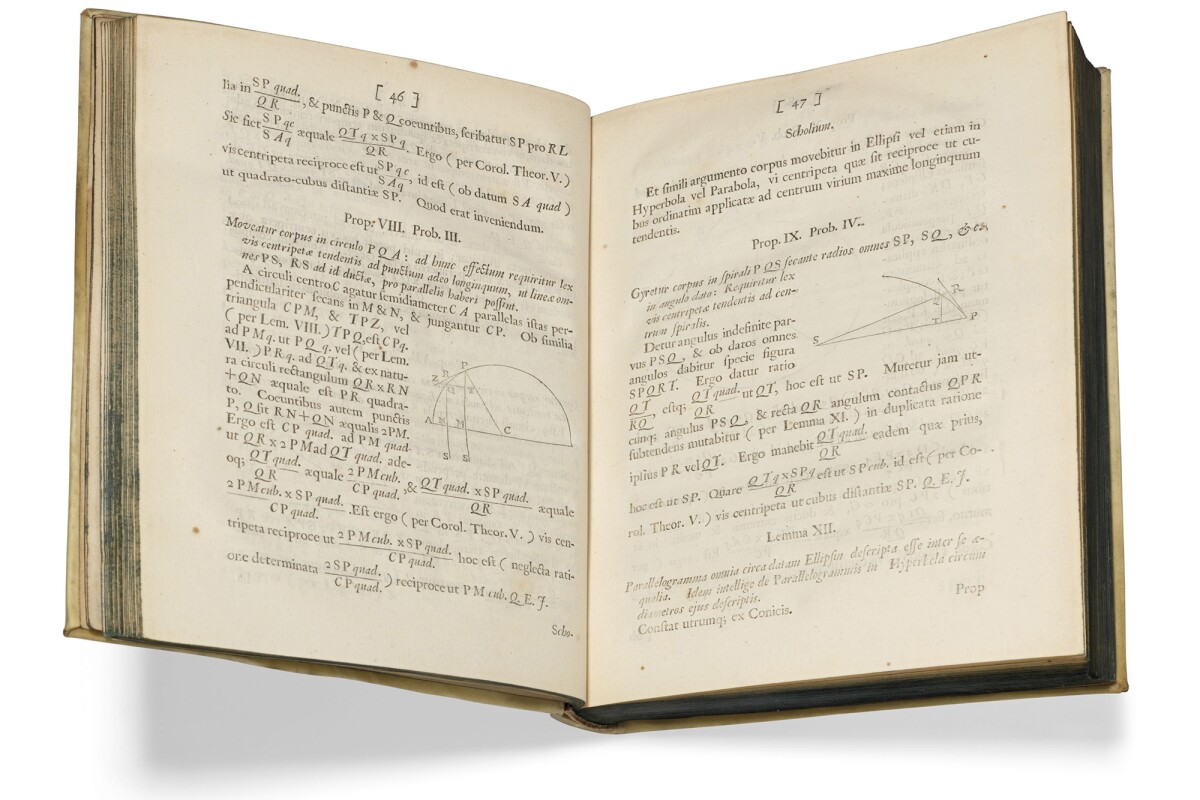 [ 46 ]
lia in SP quad. / QR, & punctis P & Q coeuntibus, scribatur SP pro RL
Sic fiet SPqc / SAq æquale QTq x SPq. / QR Ergo ( per Corol. Theor. V. )
vis centripeta reciproce est ut SPqc / SAq, id est ( ob datum SA quad )
ut quadrato-cubus distantiæ SP. Quod erat inveniendum.
Prop. VIII. Prob. III.
Moveatur corpus in circulo PQA: ad hunc effectum requiritur lex
vis centripetæ tendentis ad punctum adeo longinquum, ut lineæ om-
nes PS, RS ad id ductæ, pro parallelis haberi possint.
A circuli centro C agatur semidiameter CA parallelas istas per-
pendiculariter secans in M & N, & jungantur CP. Ob similia
triangula CPM, & TPZ, vel
( per Lem. VIII. ) TPQ, est CPq.
ad PMq. ut PQq. vel ( per Lem.
VII. ) PRq. ad QTq. & ex natu-
ra circuli rectangulum QR x RN
+QN æquale est PR quadra-
to. Coeuntibus autem punctis
P, Q fit RN+QN æqualis 2PM.
Ergo est CP quad. ad PM quad.
ut QR x 2PM ad QT quad. ade-
oq; QT quad. / QR æquale 2PM cub. / CP quad. , & QT quad. x SP quad. / QR æquale
2PM cub. x SP quad. / CP quad. . Est ergo ( per Corol. Theor. V. ) vis cen-
tripeta reciproce ut 2PM cub. x SP quad. / CP quad. hoc est ( neglecta rati-
one determinata 2SP quad. / CP quad. ) reciproce ut PM cub. Q. E. J.
Scho-
Z R P
Q T
A N M C
S S
[ 47 ]
Scholium.
Et simili argumento corpus movebitur in Ellipsi vel etiam in
Hyperbola vel Parabola, vi centripeta quæ sit reciproce ut cu-
bus ordinatim applicatæ ad centrum virium maxime longinquum
tendentis.
Prop. IX. Prob. IV.
Gyretur corpus in spirali PQS secante radios omnes SP, SQ, &c.
in angulo dato: Requiritur lex
vis centripetæ tendentis ad cen-
trum spiralis.
Detur angulus indefinite par-
vus PSQ, & ob datos omnes
angulos dabitur specie figura
SPQRT. Ergo datur ratio
QT / RQ, estq; QT quad. / QR ut QT, hoc est ut SP. Mutetur jam ut-
cunq; angulus PSQ, & recta QR angulum contactus QPR
subtendens mutabitur ( per Lemma XI. ) in duplicata ratione
ipsius PR vel QT. Ergo manebit QT quad. / QR eadem quæ prius,
hoc est ut SP. Quare QTq x SPq / QR est ut SP cub. id est ( per Co-
rol. Theor. V. ) vis centripeta ut cubus distantiæ SP. Q. E. J.
Lemma XII.
Parallelogramma omnia circa datam Ellipsin descripta esse inter se æ-
qualia. Idem intellige de Parallelogrammis in Hyperbola circum
diametros ejus descriptis.
Constat utrumq; ex Conicis.
Prop
R
T P
S